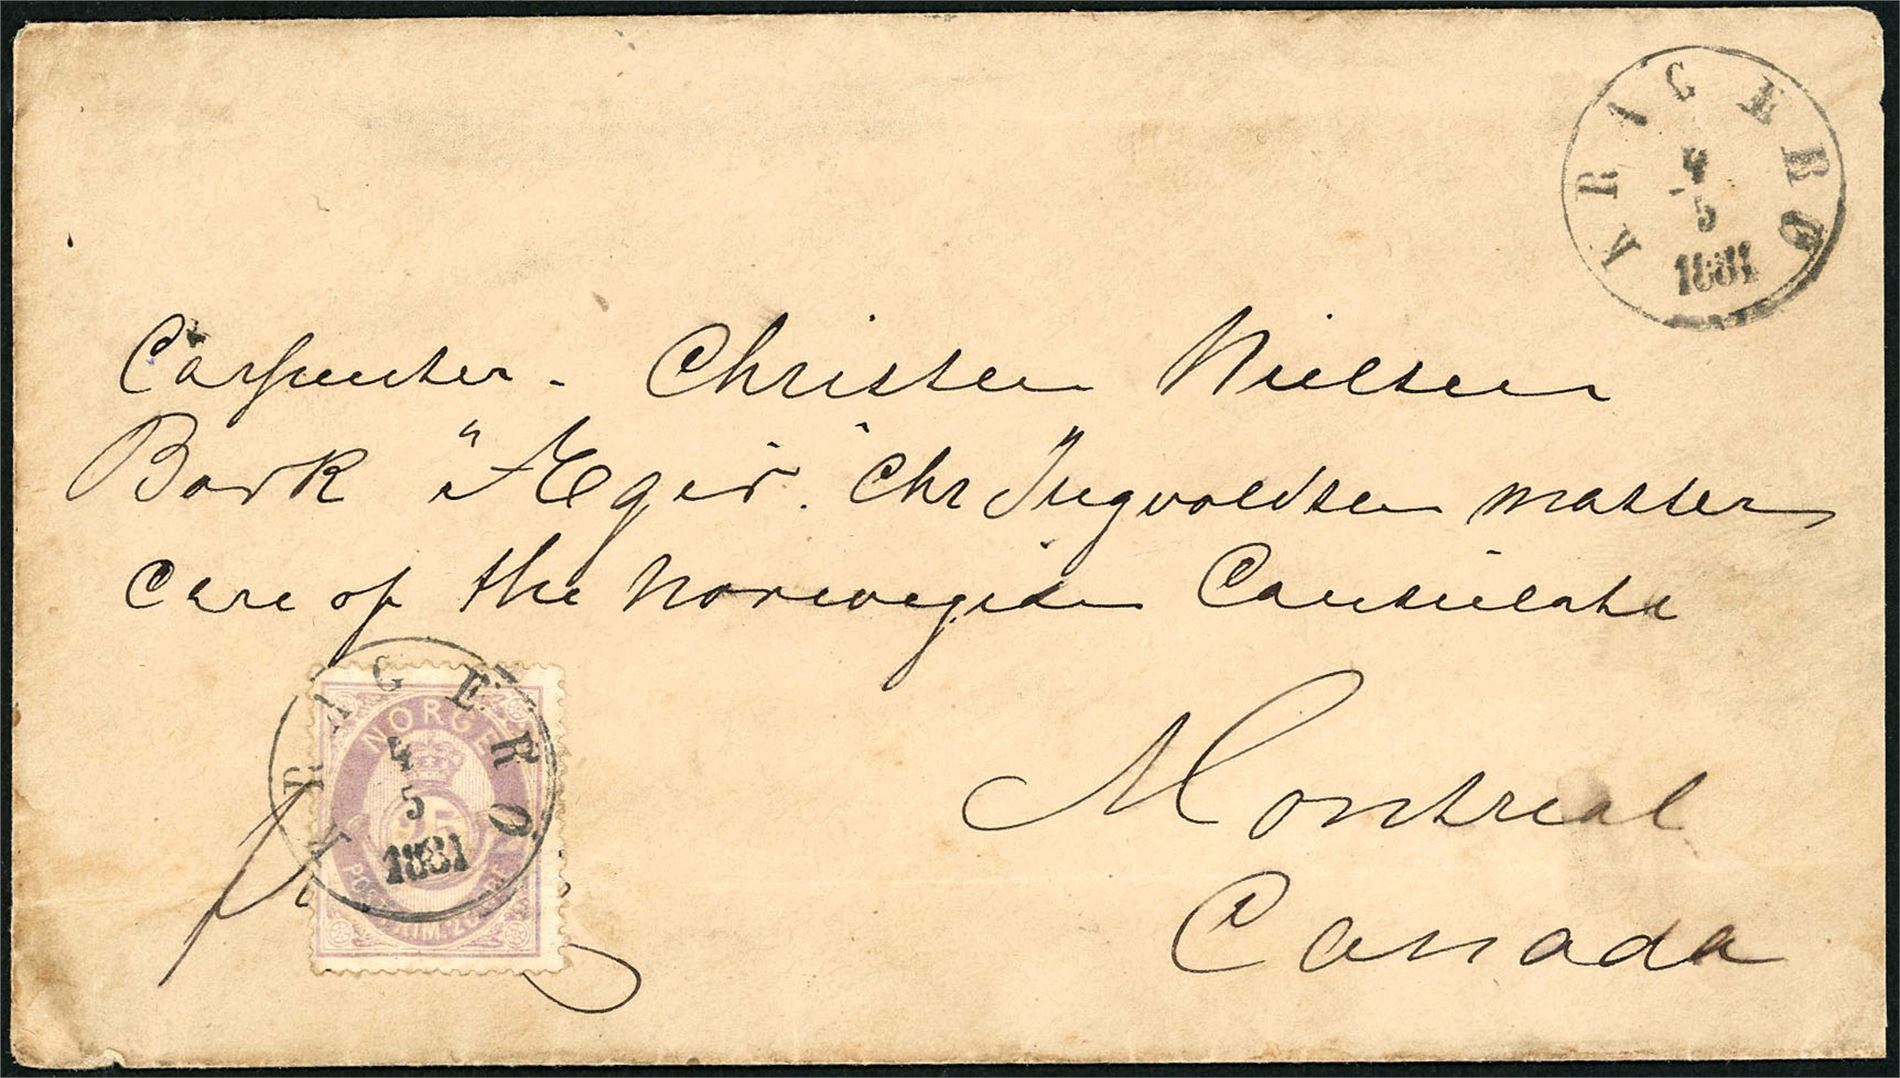 KRAGERØ
4
5
1881
Carpenter. Christen Nielsen
Bark "Ægir". Chr Ingvoldsen master
care of the Norwegian Consulate
Montreal
Canada
KRAGERØ
4
5
1881
NORGE
25